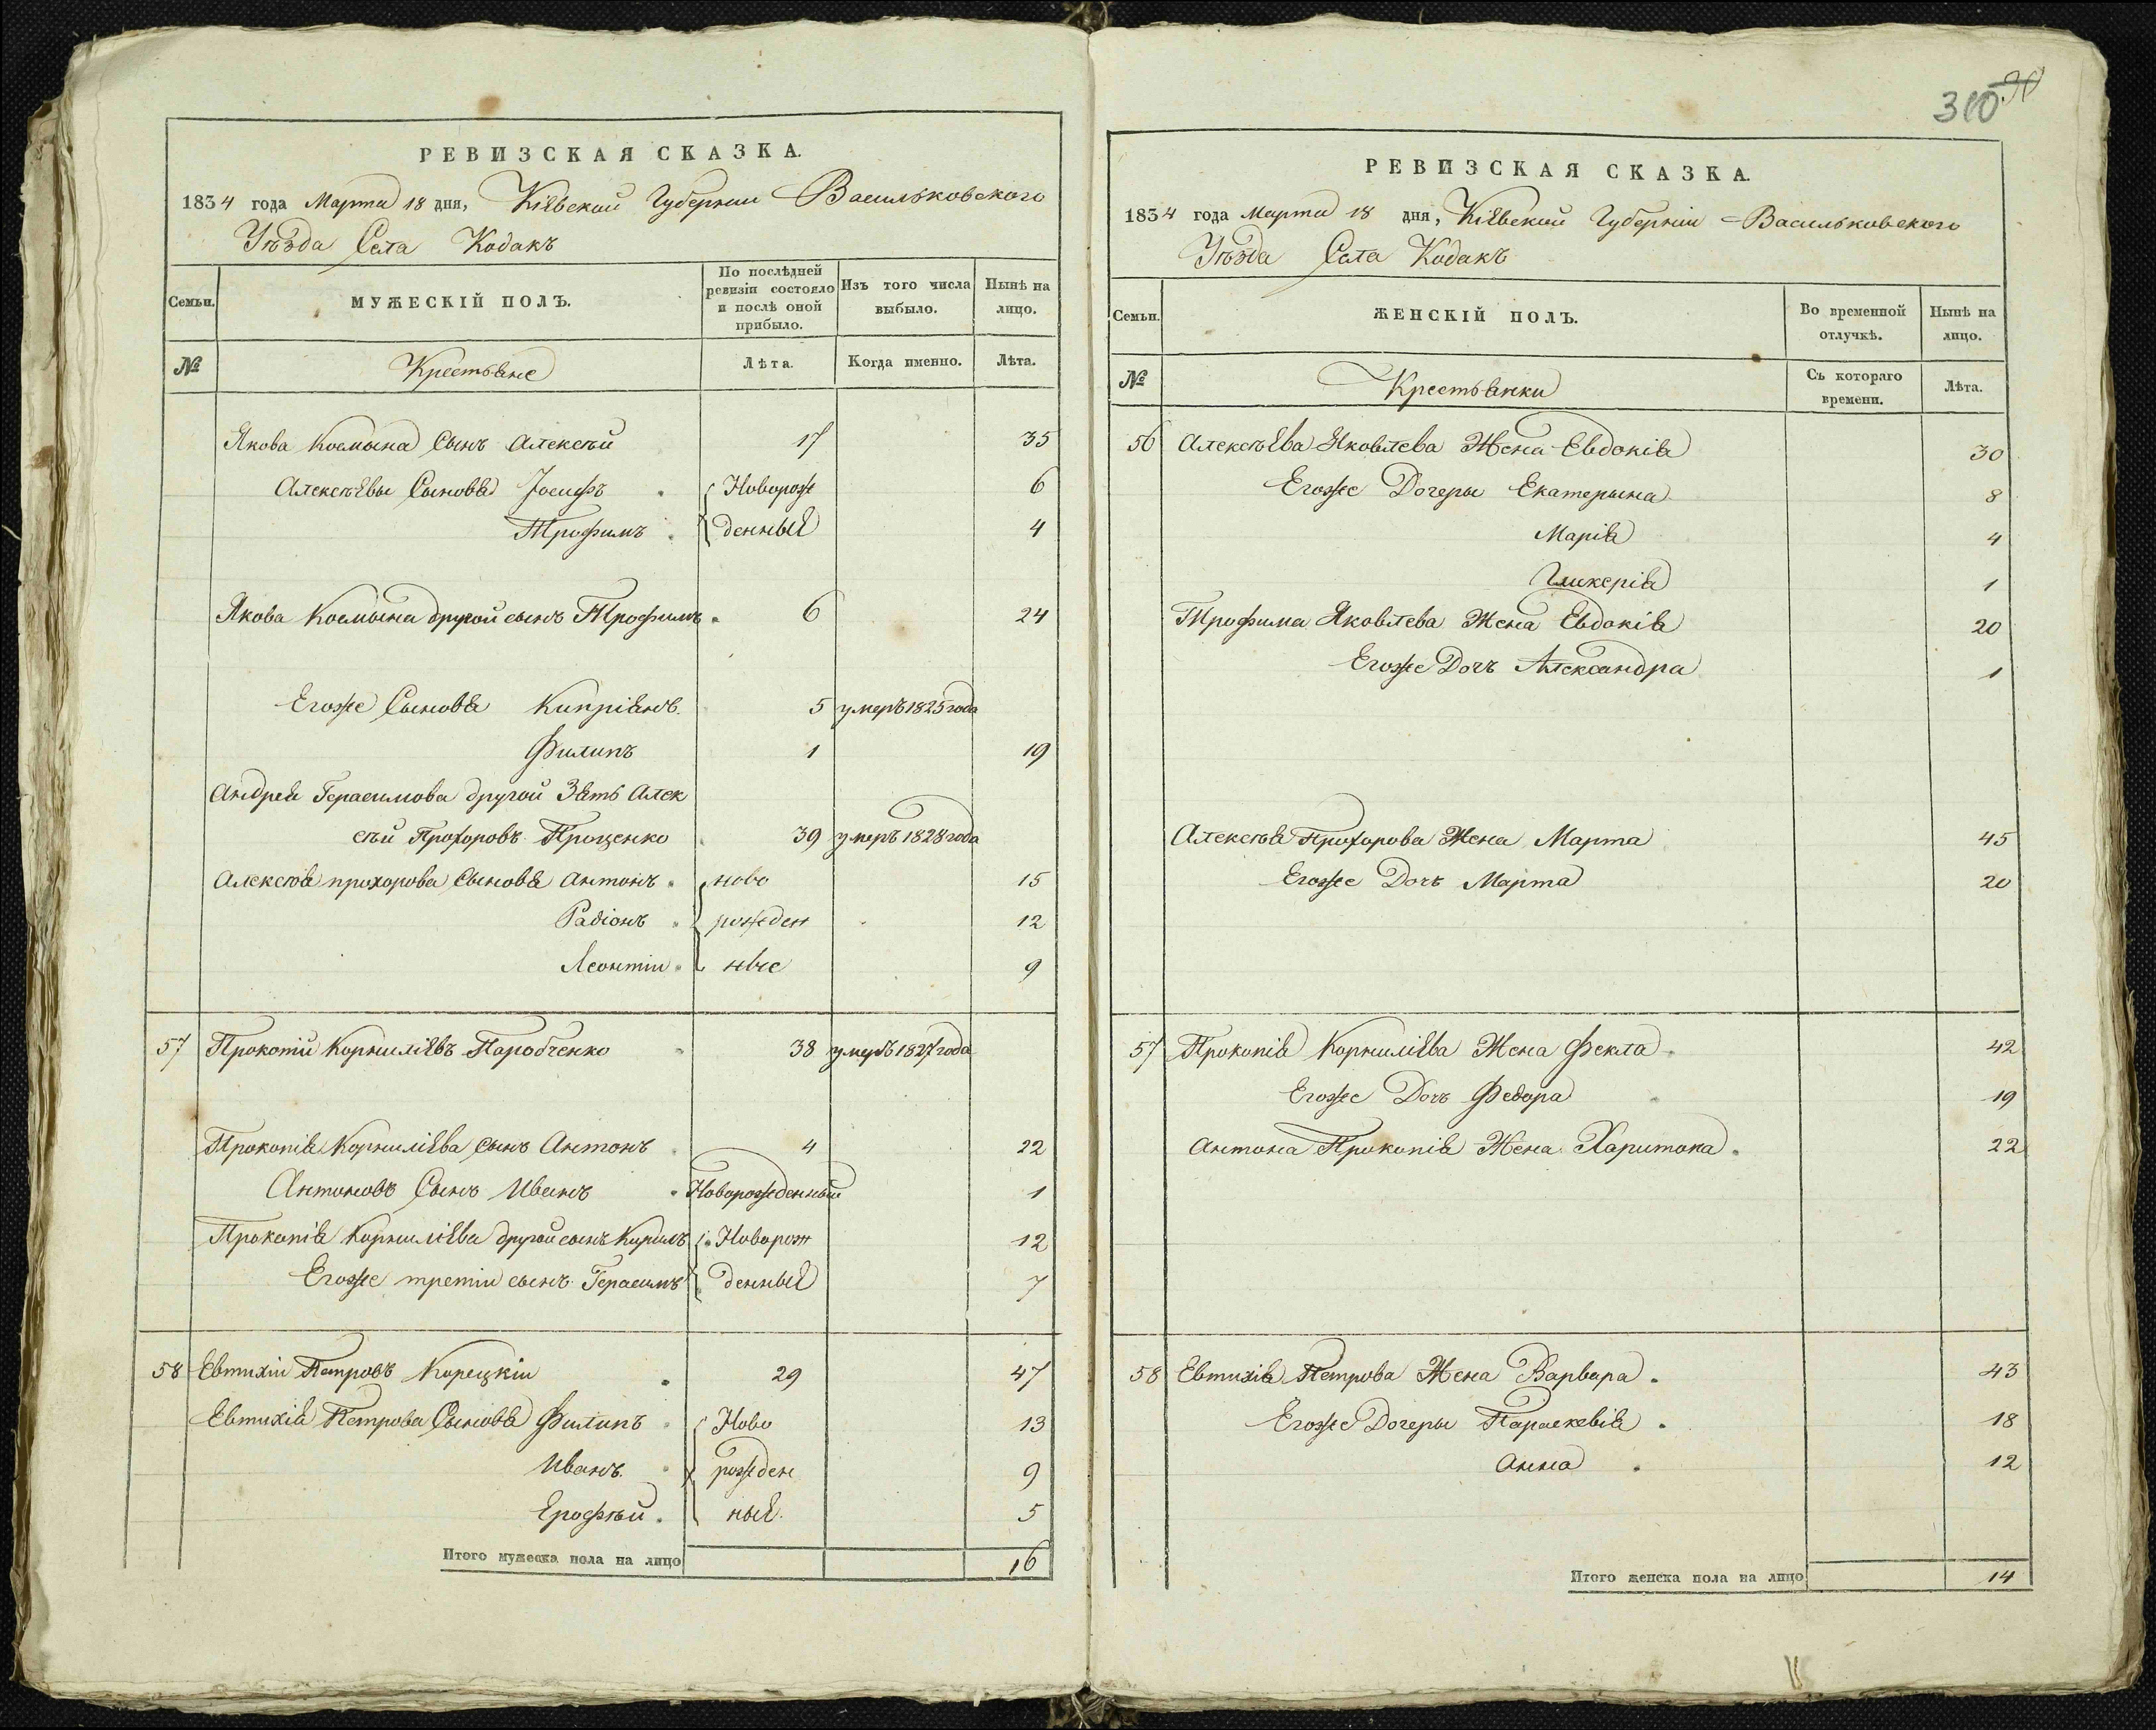 РЕВИЗСКАЯ СКАЗКА.
1834 года Марта 18 дня, Кіевской Губерніи Васильковского
Уѣзда Села Кодакъ
Семьи.
МУЖЕСКІЙ ПОЛЪ.
По послѣдней ревизіи состояло и послѣ оной прибыло.
Изъ того числа выбыло.
Нынѣ на лицо.
№
Крестьяне
Лѣта.
Когда именно.
Лѣта.
Якова Космына Сынъ Алексѣй 17 35
Алексѣевы Сыновья Іосифъ Новорож 6
Трофимъ денные 4
Якова Космына другой сынъ Трофимъ 6 24
Егоже Сыновья Кипріянъ 5 умеръ 1825 года
Филипъ 1 19
Андрея Герасимова другой Зять Алек
сѣй Прохоровъ Проценко 39 умеръ 1828 года
Алексѣя прохорова Сыновья Антонъ ново 15
Радіонъ рожден 12
Леонтіи ные 9
57 Прокопій Корниліевъ Паробченко 38 умеръ 1827 года
Прокопія Корниліева сынъ Антонъ 4 22
Антоновъ Сынъ Иванъ Новорожденный 1
Прокопія Корниліева другой сынъ Кирилъ Новорож 12
Егоже третіи сынъ Герасимъ денные 7
58 Евтихіи Петровъ Корецкіи 29 47
Евтихія Петрова Сыновья Филипъ Ново 13
Иванъ рожден 9
Ерофѣй ные 5
Итого мужеска пола на лицо 16
310 90
РЕВИЗСКАЯ СКАЗКА.
1834 года Марта 18 дня, Кіевской Губерніи Васильковского
Уѣзда Села Кодакъ
Семьи.
ЖЕНСКІЙ ПОЛЪ.
Во временной отлучкѣ.
Нынѣ на лицо.
№
Крестьянки
Съ котораго времени.
Лѣта.
56 Алексѣева Яковлева Жена Евдокія 30
Егоже Дочеры Екатерына 8
Марія 4
Гликерія 1
Трофима Яковлева Жена Евдокія 20
Егоже Дочь Александра 1
Алексѣя Прохорова Жена Марта 45
Егоже Дочь Марта 20
57 Прокопія Корниліева Жена Фекла 42
Егоже Дочь Федора 19
Антона Прокопія Жена Харитона 22
58 Евтихія Петрова Жена Варвара 43
Егоже Дочеры Параскевія 18
Анна 12
Итого женска пола на лицо 14